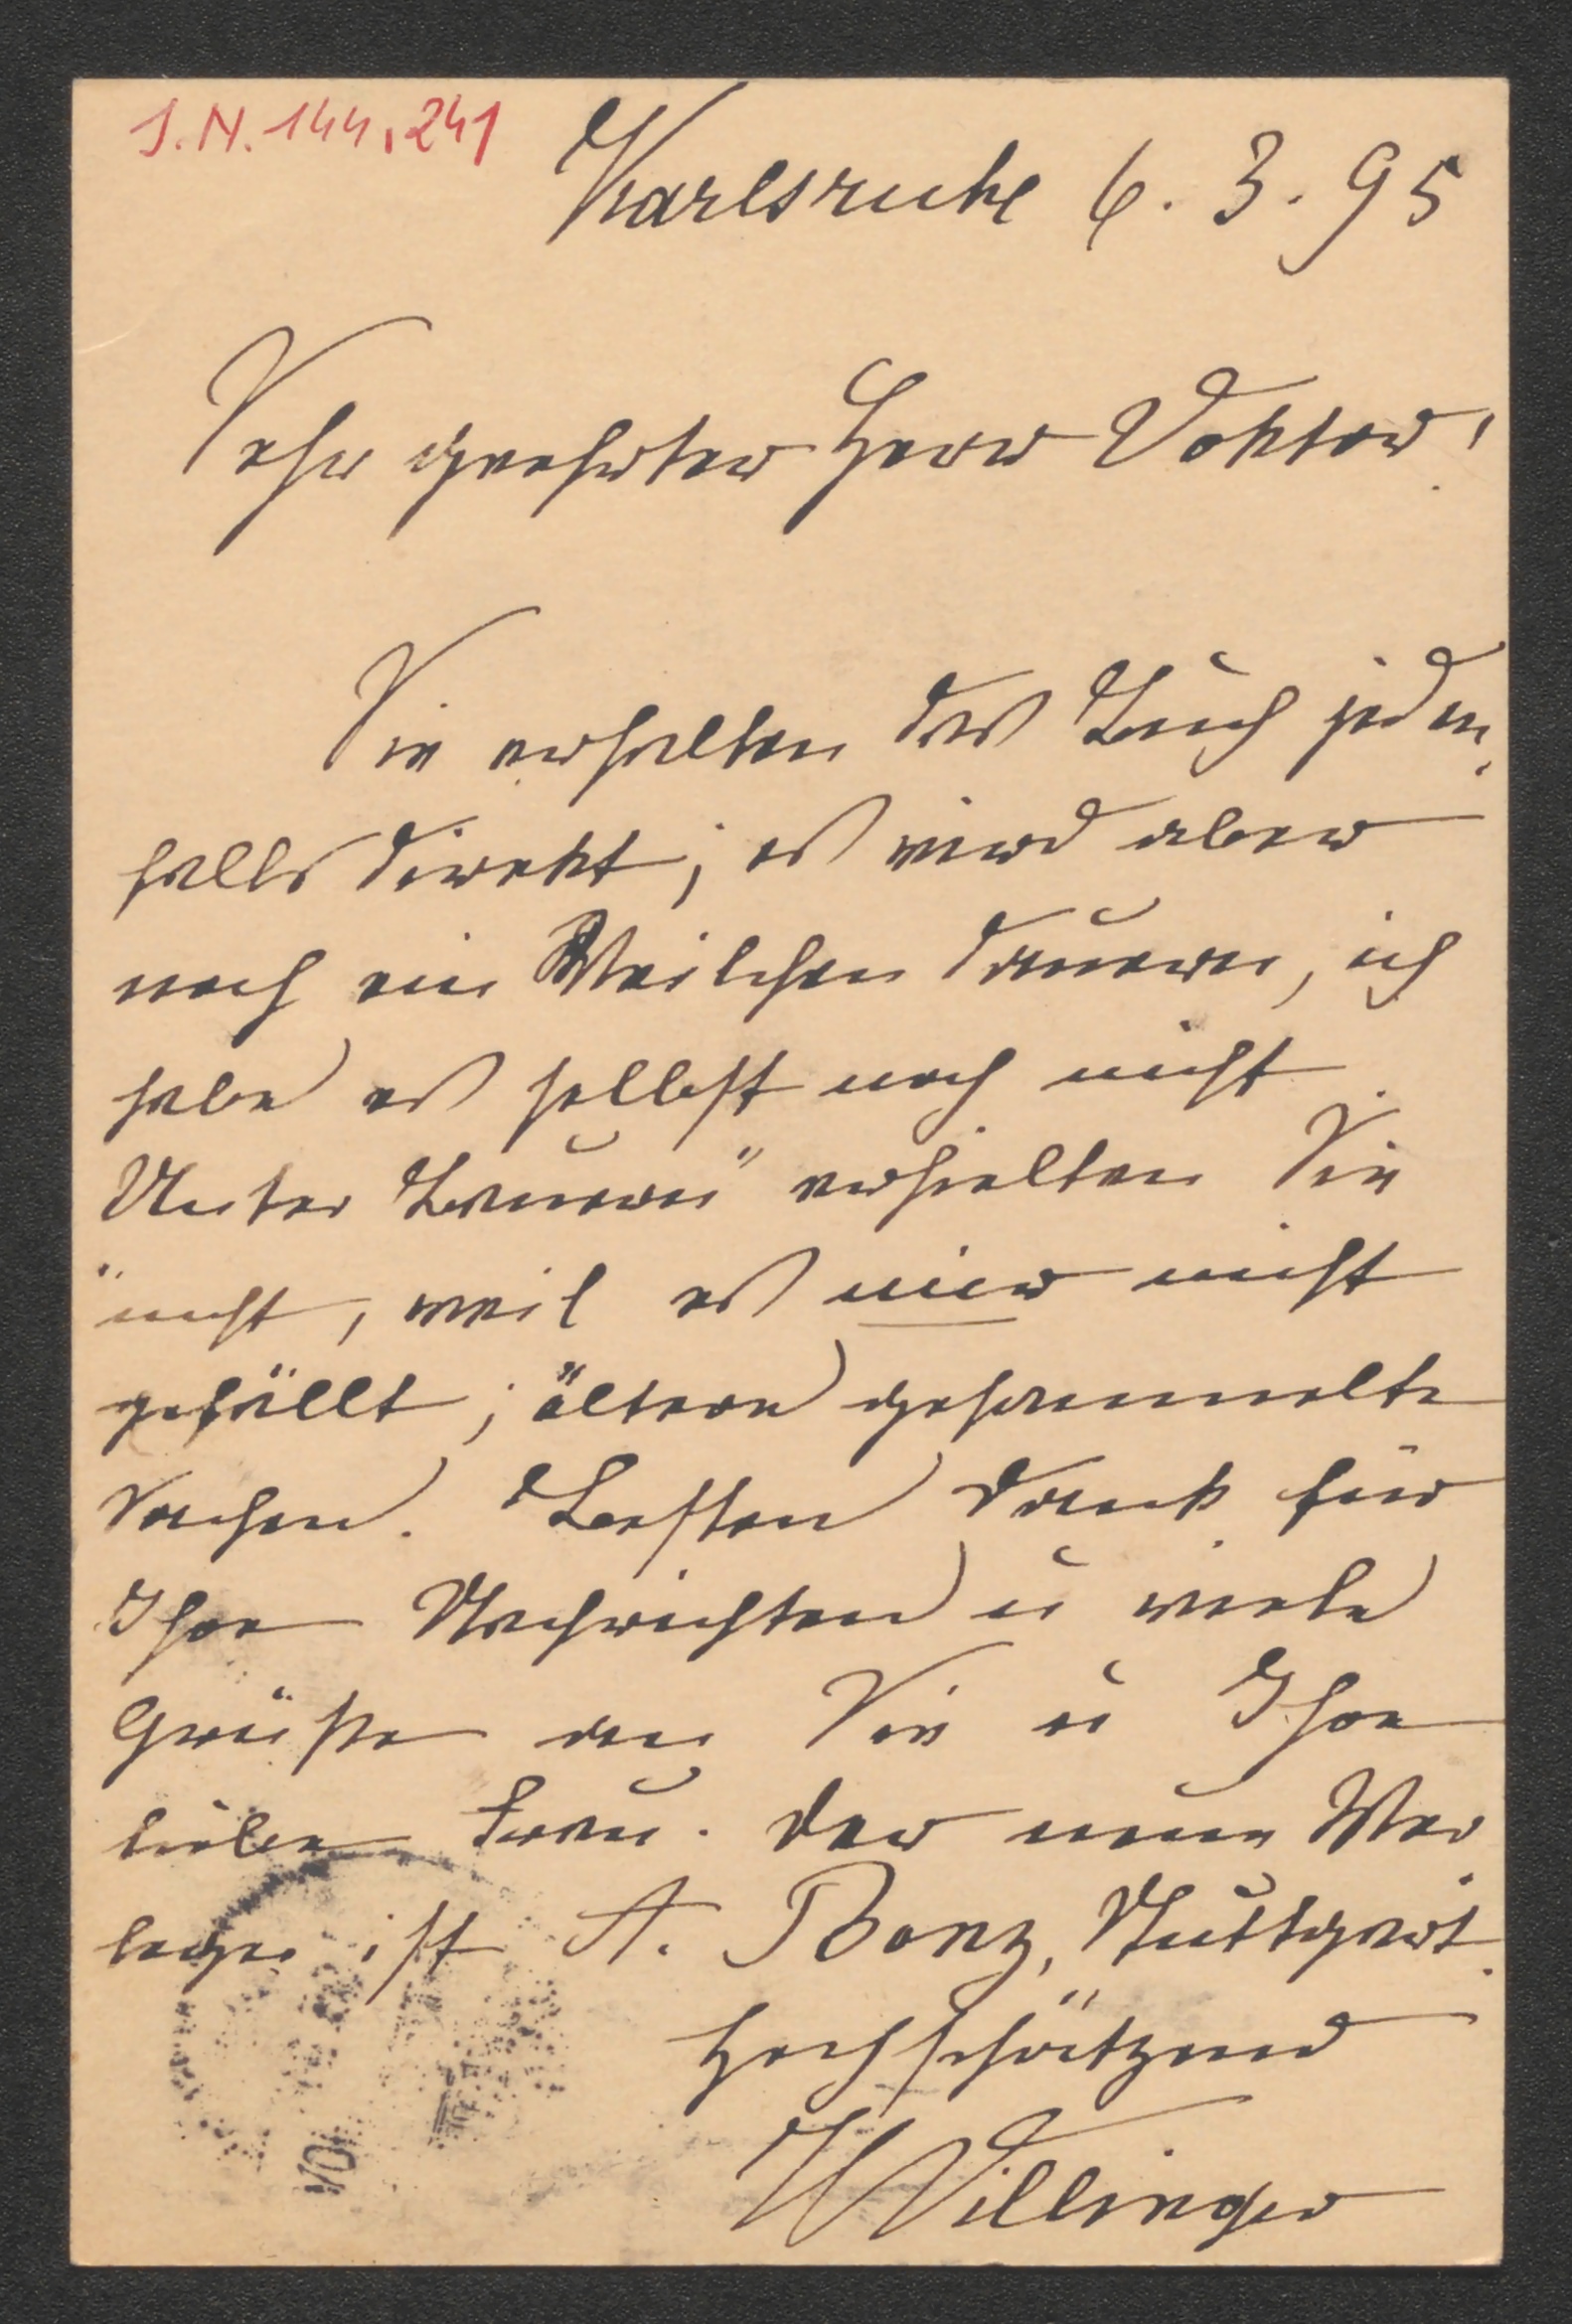 J.N. 144,241
Karlsruhe 6. 3. 95
Sehr geehrter Herr Doktor!
Sie erhalten das Buch jeden
falls direkt; es wird aber
noch ein Weilchen dauern, ich
habe es selbst noch nicht.
Unter Bauern" erhielten Sie
"nicht, weil es mir nicht
gefällt; ältere gesammelte
Sachen. Besten Dank für
Ihre Nachrichten u viele
Grüße an Sie u Ihre
liebe Frau. Der neue Ver
leger ist A. Bonz, Stuttgart.
Hochschätzend
HVillinger